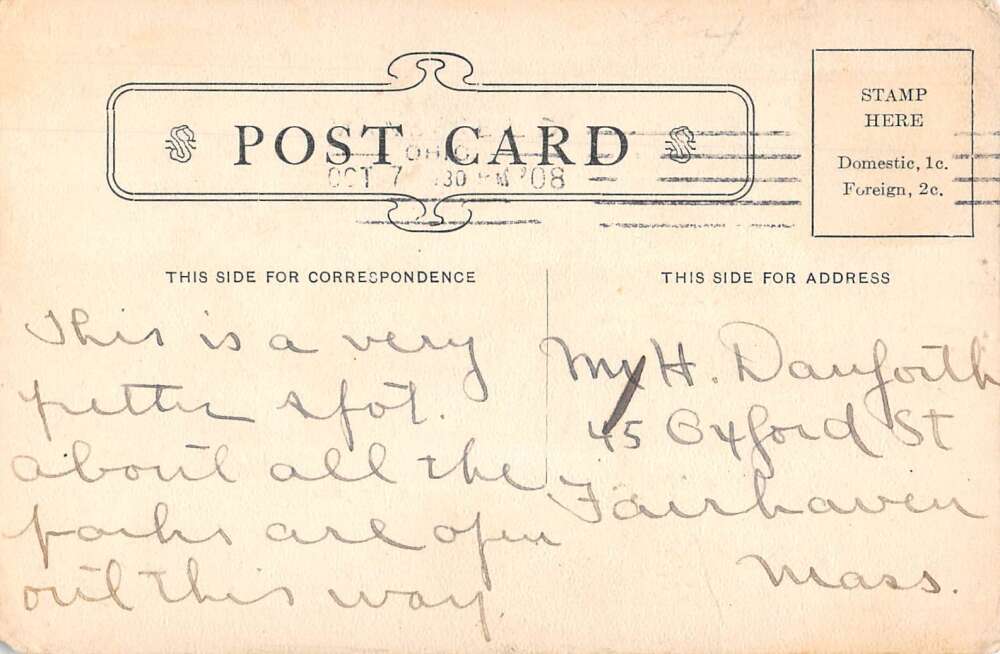 POST CARD
OHIO
OCT 7 30 PM '08
STAMP
HERE
Domestic, 1c.
Foreign, 2c.
THIS SIDE FOR CORRESPONDENCE
THIS SIDE FOR ADDRESS
This is a very
pretty spot.
about all the
parks are open
out this way.
H. Danforth
45 Oxford St
Fairhaven
Mass.